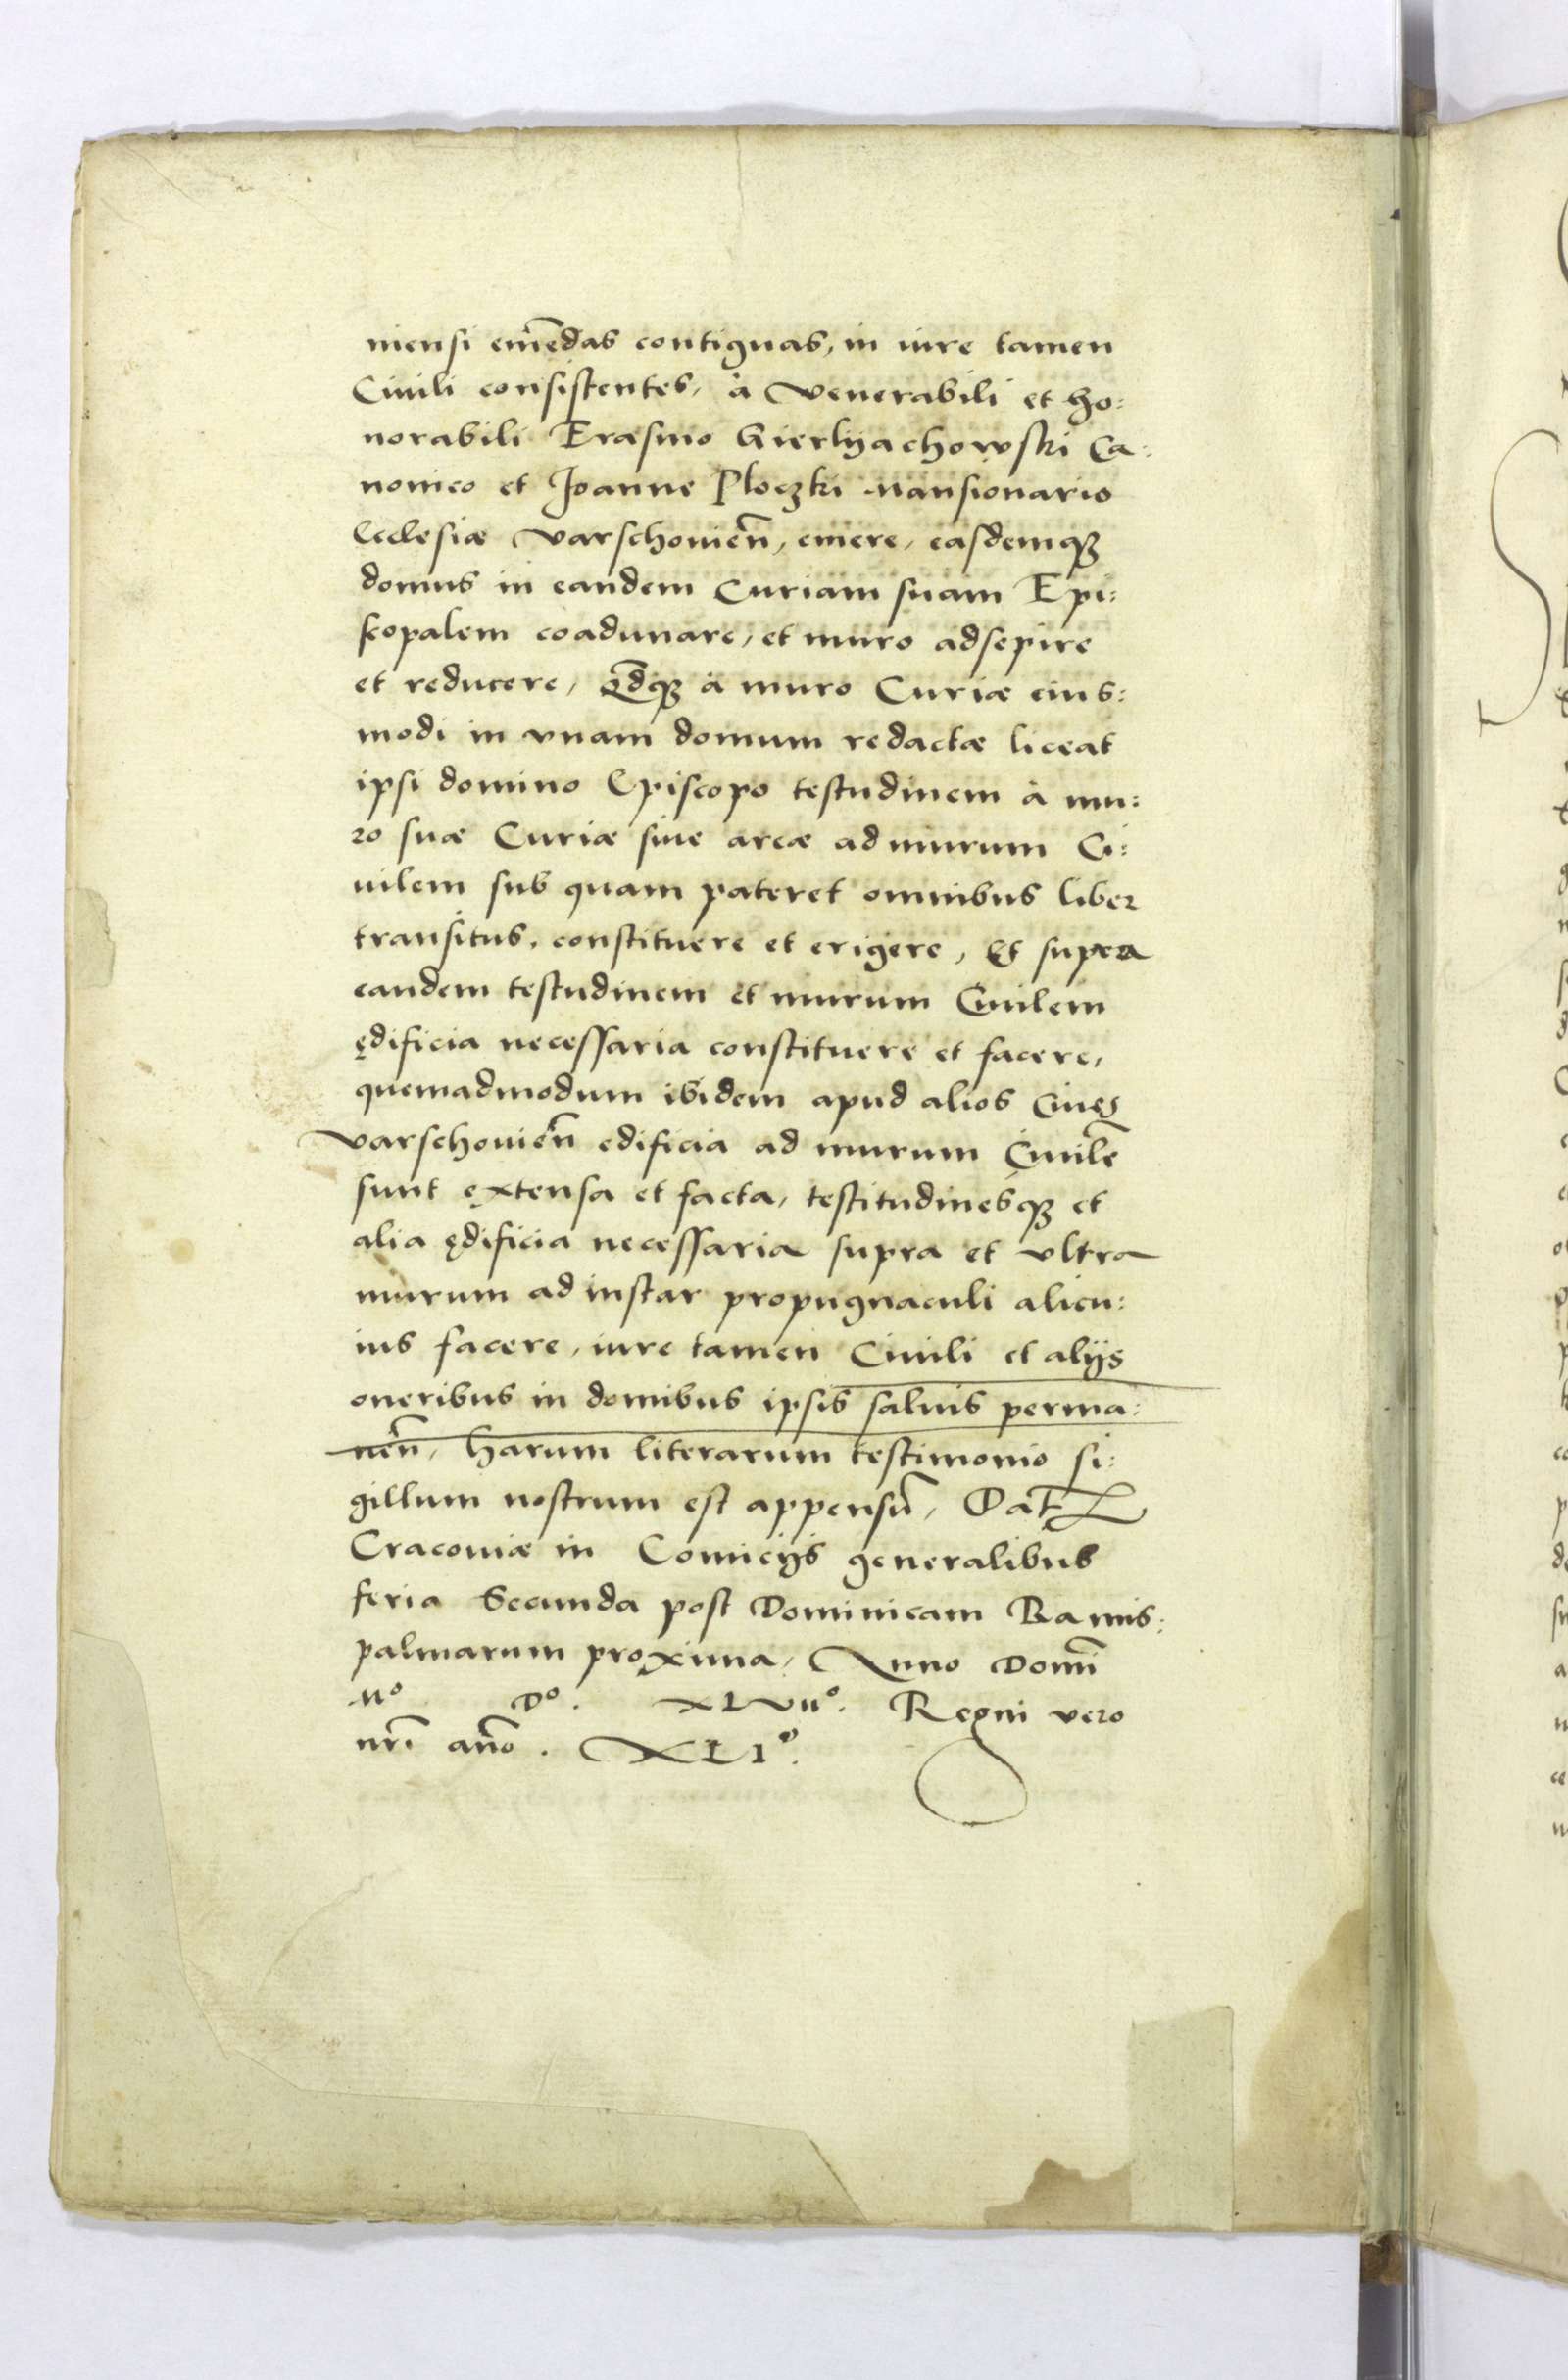 niensi em̃edas contiguas, in iure tamen
Ciuili consistentes, à Venerabili et ho:
norabili Erasmo Gierlyachowski Ca:
nonico et Joanne Ploczki Mansionario
Ecclesiæ Varschouieñ, emere, easdemqꝫ
domus in eandem Curiam suam Epi:
scopalem coadunare, et muro adsepire
et reducere, Qd̃qꝫ à muro Curiæ eius:
modi in vnam domum redactæ liceat
ipsi domino Episcopo testudinem à mu:
ro suæ Curiæ siue arcæ ad murum Ci:
uilem sub quam pateret omnibus liber
transitus, constituere et erigere, Et supra
eandem testudinem et murum Ciuilem
ędificia necessaria constituere et facere,
quemadmodum ibidem apud alios Ciues
Varschouieñ edificia ad murum Ciuilẽ
sunt extensa et facta, testitudinesqꝫ et
alia ędificia necessaria supra et vltra
murum ad instar propugnaculi alicu:
ius facere, iure tamen Ciuili et alijs
oneribus in domibus ipsis saluis perma:
neñ, harum literarum testimonio si:
gillum nostrum est appensũ, Dat̃
Cracouiæ in Comicijs generalibus
feria Secunda post Dominicam Ramis:
palmarum proxima, Anno Domĩ
Mº Dº. XLVIIº. Regni vero
nr̃i año. XLIº.